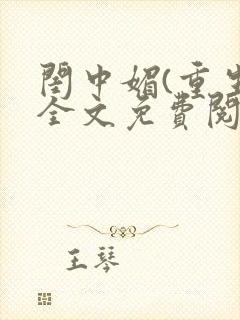 閨中媚(重生
全文免費閱
王琴